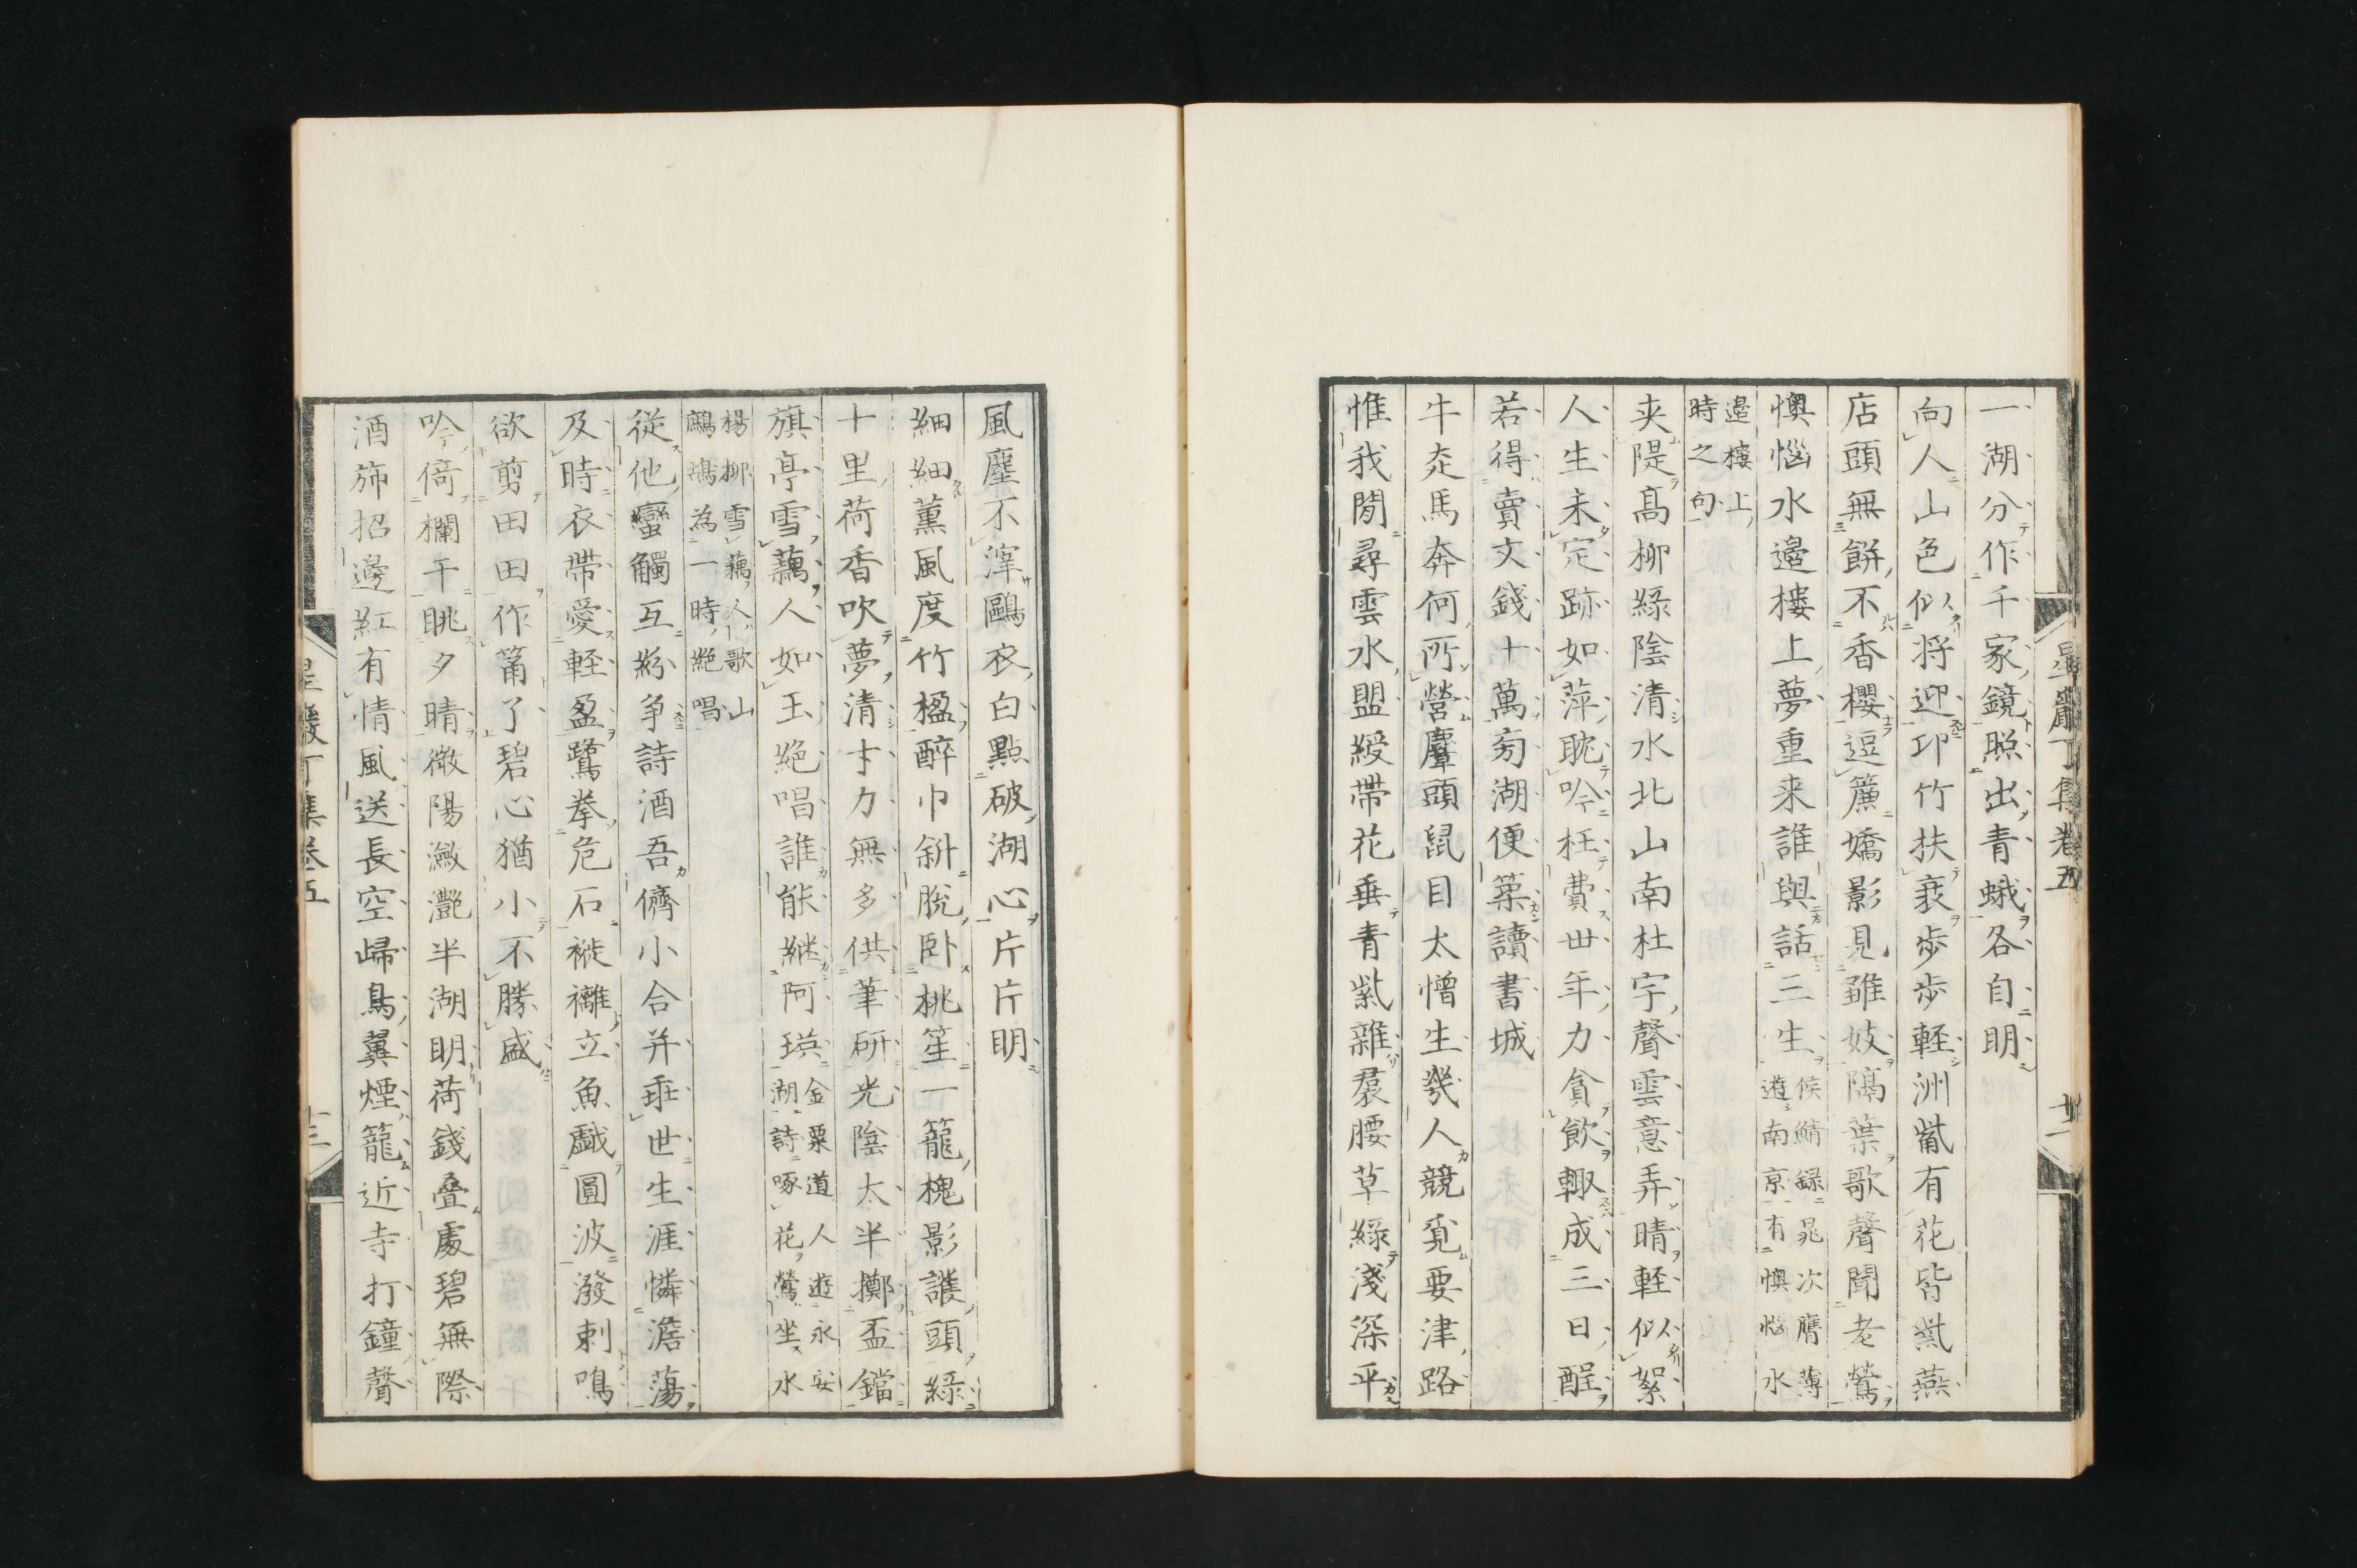 一湖分作千家鏡照出青蛾各自明
向人山色似将迎邛竹扶衰歩歩軽洲觜有花皆紫燕
店頭無餅不香櫻逗簾嬌影見雛妓隔葉歌聲聞老鶯
懊惱水邉樓上夢重来誰與話三生
侯鯖録晁次膺薄
遊南京有懊惱水
邉樓上
時之句
夾隄髙柳緑陰清水北山南杜宇聲雲意弄晴軽似絮
人生未定跡如萍耽吟枉費丗年力貪飲輙成三日酲
若得賣文錢十萬匆湖便築讀書城
牛走馬奔何所營麞頭鼠目太憎生幾人競覓要津路
惟我閒尋雲水盟綬帯花垂青紫雜裙腰草緑淺深平
星巖丁集卷五
風塵不滓鷗衣白點破湖心片片明
細細薫風度竹楹醉巾斜脱卧桃笙一籠槐影護頭緑
十里荷香吹夢清才力無多供筆研光陰太半擲盃鐺
旗亭雪藕人如玉絶唱誰能継阿瑛
金粟道人遊永安
湖詩啄花鶯坐水
楊柳雪藕人歌山
鷓鴣為一時絶唱
従他蠻觸互紛争詩酒吾儕小合并乖世生涯憐澹蕩
及時衣帯愛軽盈鷺拳危石褷褵立魚戯圓波潑剌鳴
欲剪田田作筩了碧心猶小不勝盛
吟倚欄干眺夕晴微陽瀲灔半湖明荷錢疊處碧無際
酒斾招邉紅有情風送長空歸鳥翼煙籠近寺打鐘聲
星巖丁集卷五